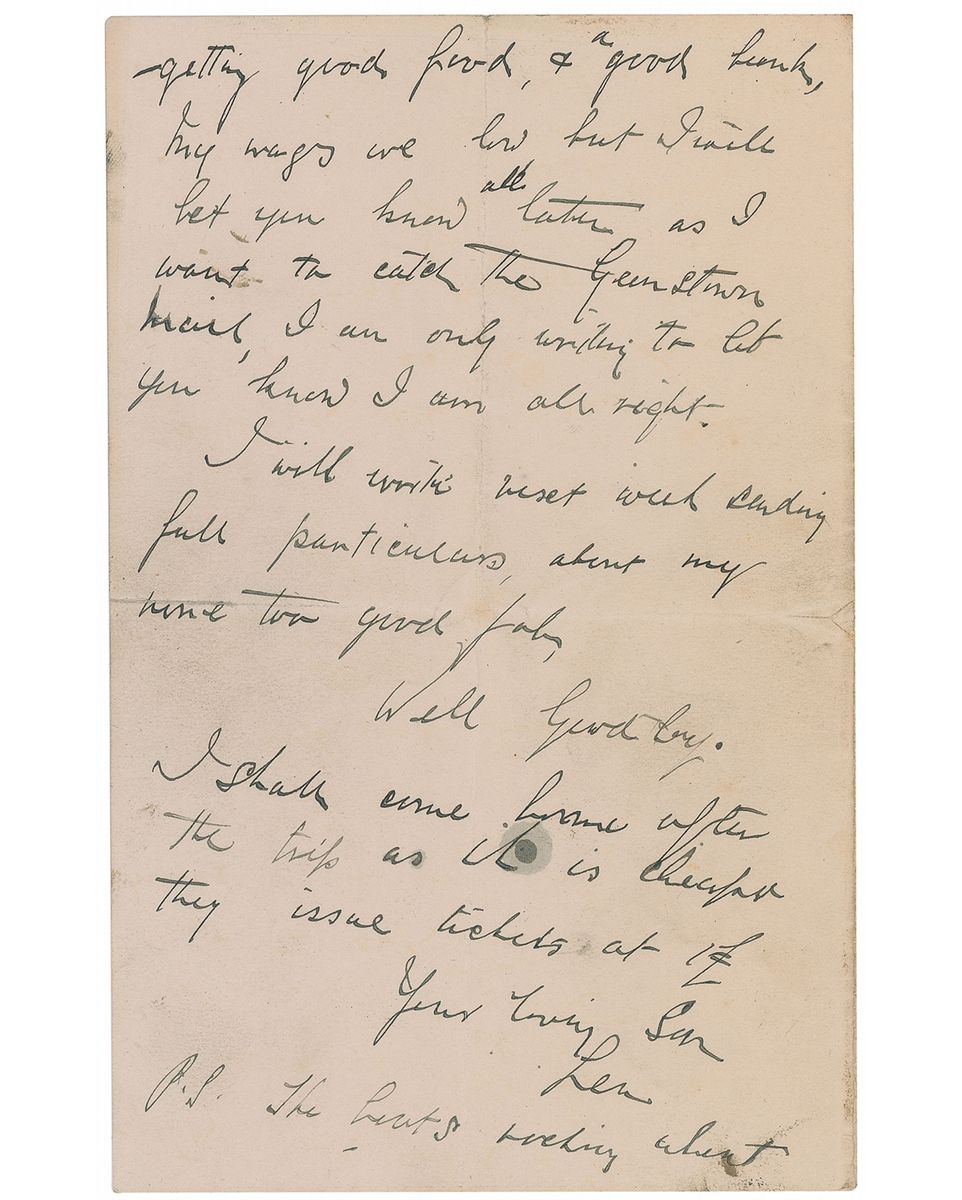 getting good food, & a good bunk,
My wages are low but I will
let you know all later as I
want to catch the Qeenstown
mail, I am only writing to let
you know I am all right.
I will write next week sending
full particulars, about my
none too good job,
Well Good by.
I shall come home after
the trip as it is cheaper
they issue tickets at
Your loving Son
Len
P.S. The boats rocking about